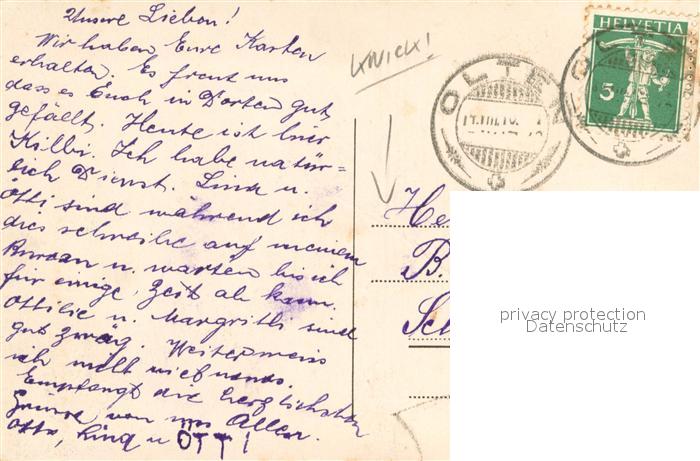 Unsere Lieben!
Wir haben Eure Karten
erhalten. Es freut uns
dass es Euch in Dorten gut
gefällt. Heute ist hier
Kilbi. Ich habe natür=
lich Dienst. Lina u.
Otti sind während ich
dies schreibe auf meinem
Bureau u. warten bis ich
für einige Zeit ab kann.
Ottilie u. Margrithli sind
gut zwäg. Weiter weiss
ich nicht viel neues.
Empfangt die herzlichsten
Grüsse von uns Allen.
Otto, Lina u OTTI
KNICK!
OLTEN
HELVETIA
5
He
B.
Sch
privacy protection
Datenschutz